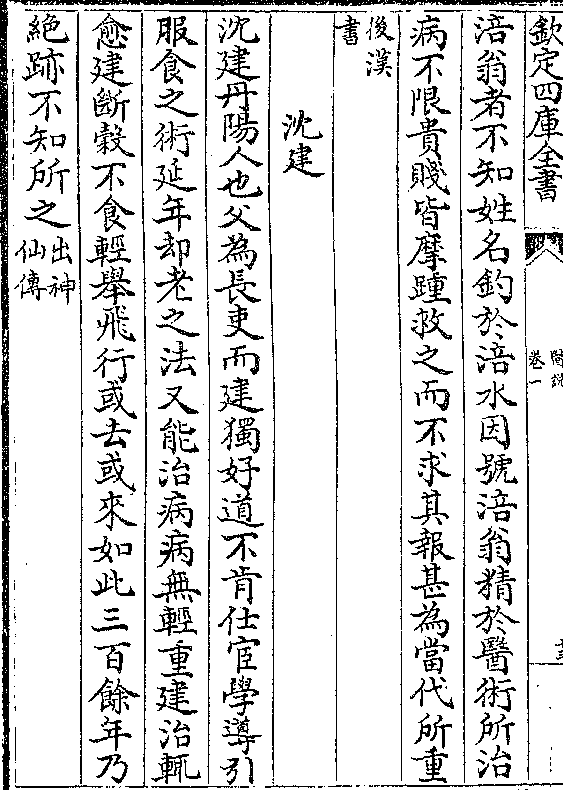 欽定四庫全書
醫說
卷一
涪翁者不知姓名釣於涪水因號涪翁精於醫術所治
病不限貴賤皆摩踵救之而不求其報甚為當代所重
後漢
書
沈建
沈建丹陽人也父為長吏而建獨好道不肯仕宦學導引
服食之術延年却老之法又能治病病無輕重建治輒
愈建斷穀不食輕舉飛行或去或來如此三百餘年乃
絕跡不知所之出神
仙傳